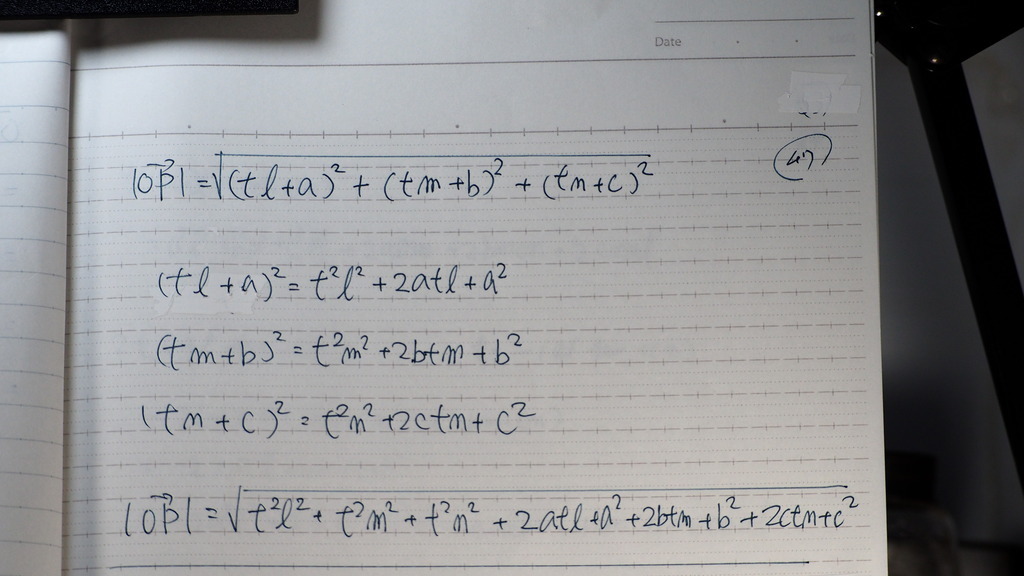 Date
47
|OP→| = √(tl+a)² + (tm+b)² + (tn+c)²
(tl+a)² = t²l² + 2atl + a²
(tm+b)² = t²m² + 2btm + b²
(tn+c)² = t²n² + 2ctn + c²
|OP→| = √t²l² + t²m² + t²n² + 2atl + a² + 2btm + b² + 2ctn + c²